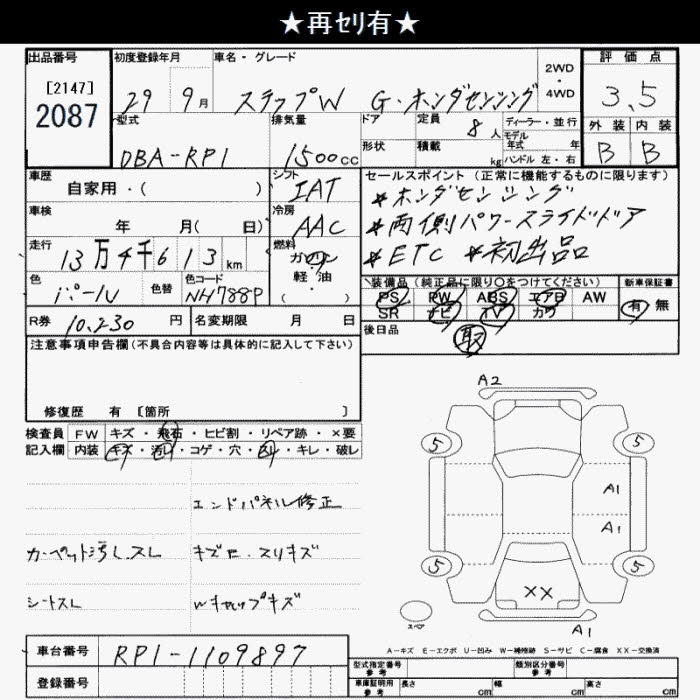 ★再ｾﾘ有★
出品番号 初度登録年月 車名・グレード 2WD 評価点
[2147] 2087 29 9月 ステップW G・ホンダセンシング ・ 4WD 3.5
型式 排気量 ドア 定員 8人 ディーラー・並行 外装 内装
DBA-RP1 1500cc 形状 積載 kg モデル年式 年 B B
ハンドル 左・右
車歴 シフト セールスポイント（正常に機能するものに限ります）
自家用・（ ） IAT ＊ホンダセンシング
車検 冷房 ＊両側パワースライドドア
年 月（ 日） AAC ＊ETC ＊初出品
走行 燃料
13万4千613km ガソリン
軽油
・（ ）
色 色替 色コード 装備品（純正品に限り〇をつけてください） 新車保証書
パール NH788P PS PW ABS エアB AW 有 無
SR ナビ TV カワ
R券 10,230 円 名変期限 月 日 後日品
取
注意事項申告欄（不具合内容等は具体的に記入して下さい）
修復歴 有 [箇所 ]
検査員 FW キズ・飛石・ヒビ割・リペア跡・×要
記入欄 内装 キズ・汚れ・コゲ・穴・凹・キレ・破レ
エンドパネル修正
カーペット汚レスレ キズ セ.スリキズ
シートスレ Wキャップキズ
A2
5 5
A1
A1
5 5
XX
スペア
A1
A－キズ E－エクボ U－凹み W－補修跡 S－サビ C－腐食 XX－交換済
車台番号 RP1-1109897
登録番号
型式指定番号 参考 類別区分番号 参考
車庫証明用 参考 長さ cm 幅 cm 高さ cm